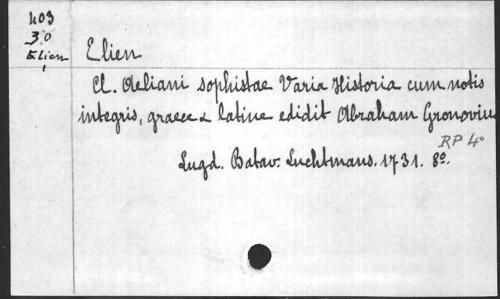 403
30
Elien
Elien
Cl. Aeliani sophistae Varia Historia cum notis
integris, graece & latine edidit Abraham Gronovius
RP 4o
Lugd. Batav. Luchtmans. 1731. 8o.